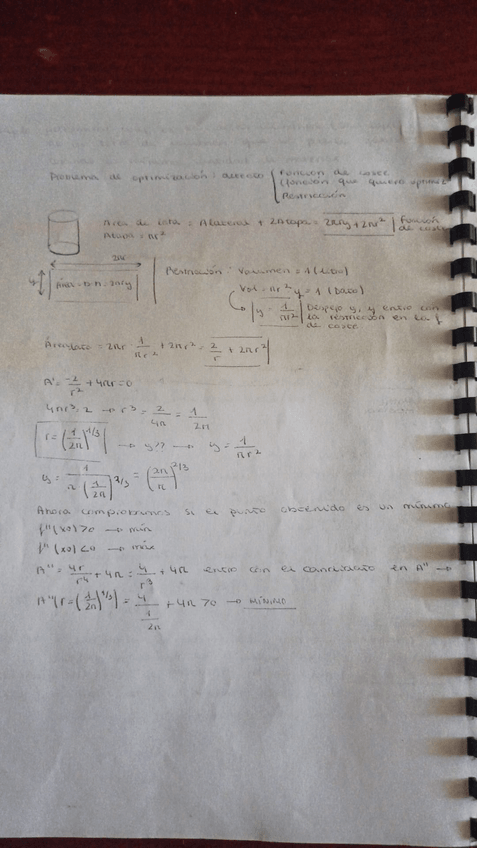 Problema de optimización: dentro { Función de coste
(función que quiero optimiz
Restricción
Área de lata = Alateral + 2Atapa = 2πry + 2πr² | función de coste
Atapa = πr²
2πr
y Área = b·h = 2πry
Restricción: Volumen = 1 (dato)
Vol = πr² y = 1 (Dato)
y = 1/πr² Despejo y, y entro con
la restricción en la f
de coste
= 2πr · 1/πr² + 2πr² = 2/r + 2πr²
A' = -2/r² + 4πr = 0
4πr³ = 2 → r³ = 2/4π = 1/2π
r = (1/2π)^1/3 → y?? → y = 1/πr²
y = 1/π·(1/2π)^2/3 = (2π/π)^2/3
Ahora comprobamos si el punto obtenido es un mínimo
f''(x0) > 0 → mín
f''(x0) < 0 → máx
A'' = 4r/r⁴ + 4π = 4/r³ + 4π entro con el candidato en A'' →
A''(r = (1/2π)^1/3) = 4/(1/2π) + 4π > 0 → MÍNIMO